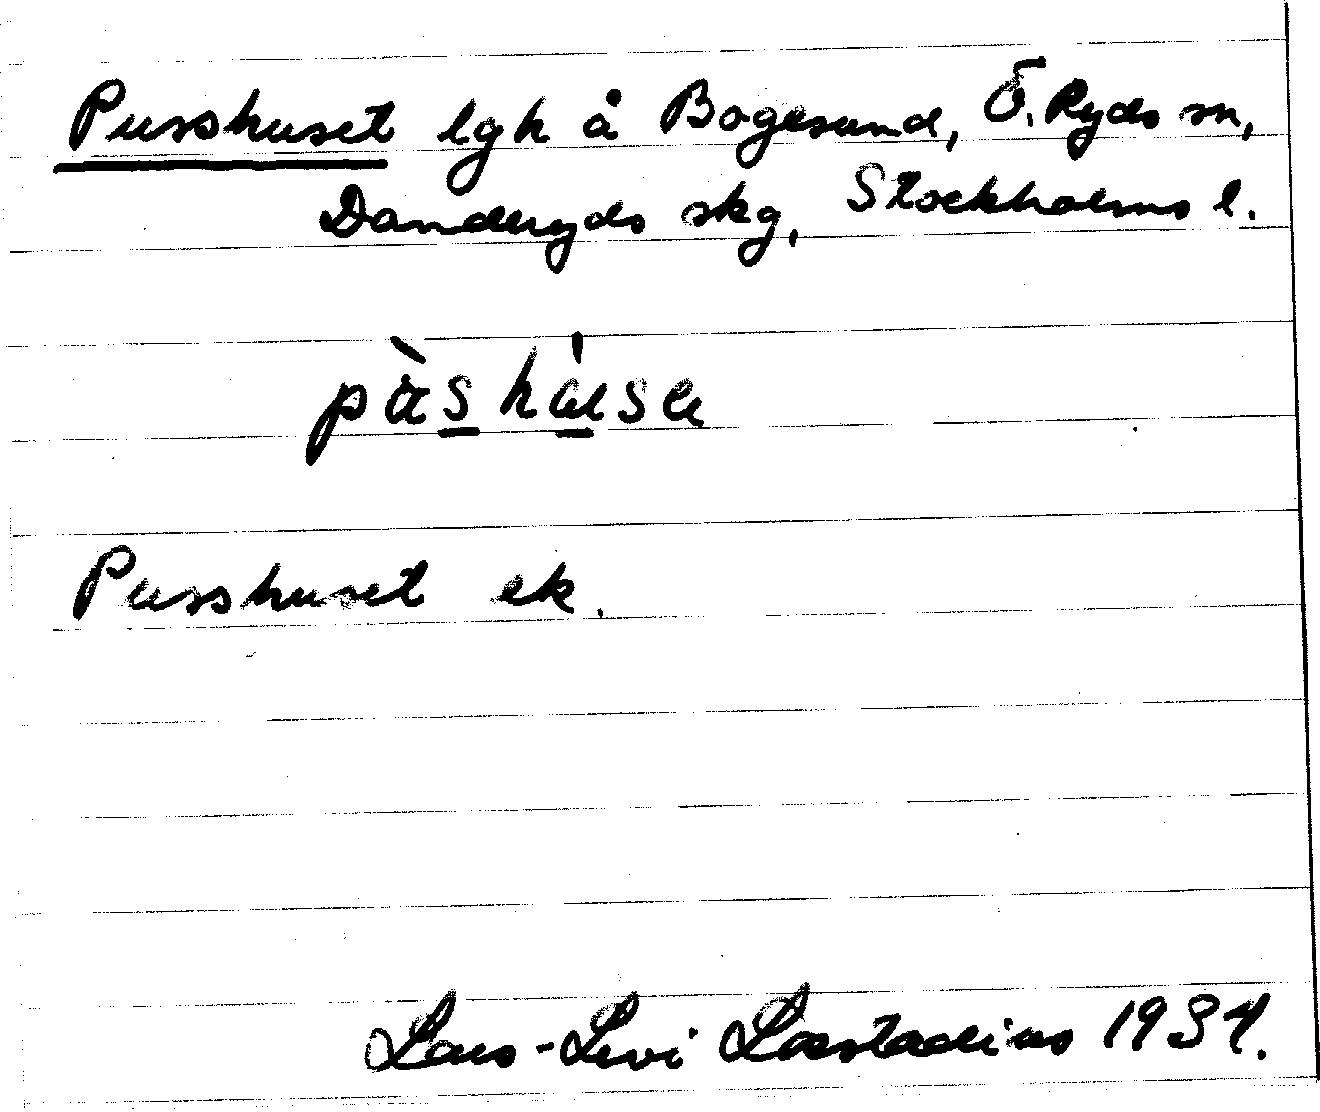 Pusshuset lgh å Bogesund, Ö. Ryds sn,
Danderyds skg, Stockholms l.
Pusshuset ek.
Lars-Levi Laestadius 1934.